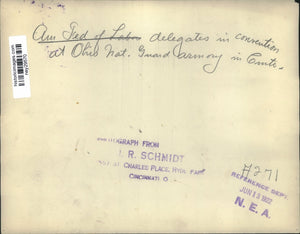 Am Fed of Labor delegates in convention
at Ohio Nat. Guard armory in Cinti.
PHOTOGRAPH FROM
R. SCHMIDT
CHARLES PLACE, HYDE PARK
CINCINNATI, O.
A271
REFERENCE DEPT.
JUN 19 1922
N. E. A.